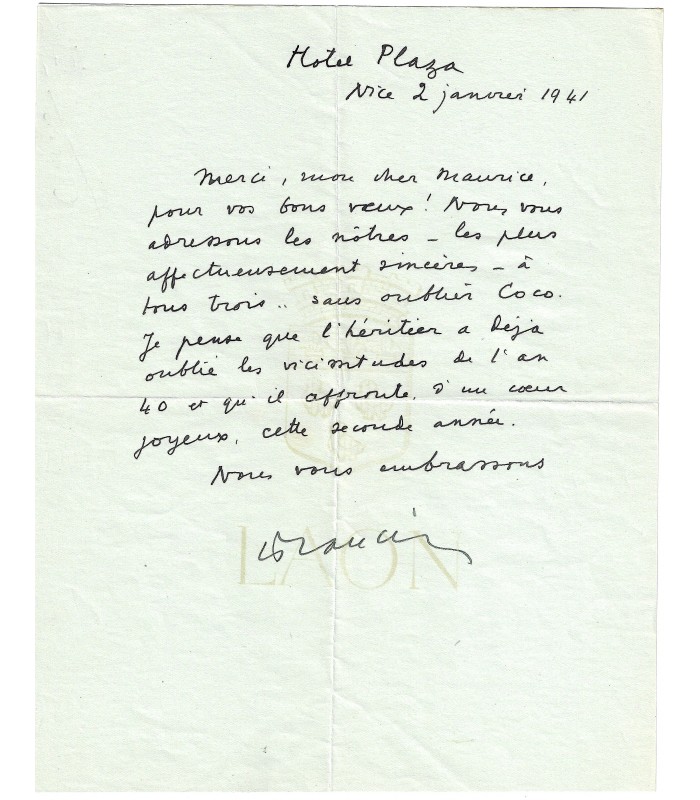 Hotel Plaza
Nice 2 janvier 1941
Merci, mon cher Maurice,
pour vos bons vœux! Nous vous
adressons les nôtres - les plus
affectueusement sincères - à
tous trois.. sans oublier Coco.
Je pense que l'héritier a déjà
oublié les vicissitudes de l'an
40 et qu'il affronte, d'un cœur
joyeux, cette seconde année.
Nous vous embrassons
LAON